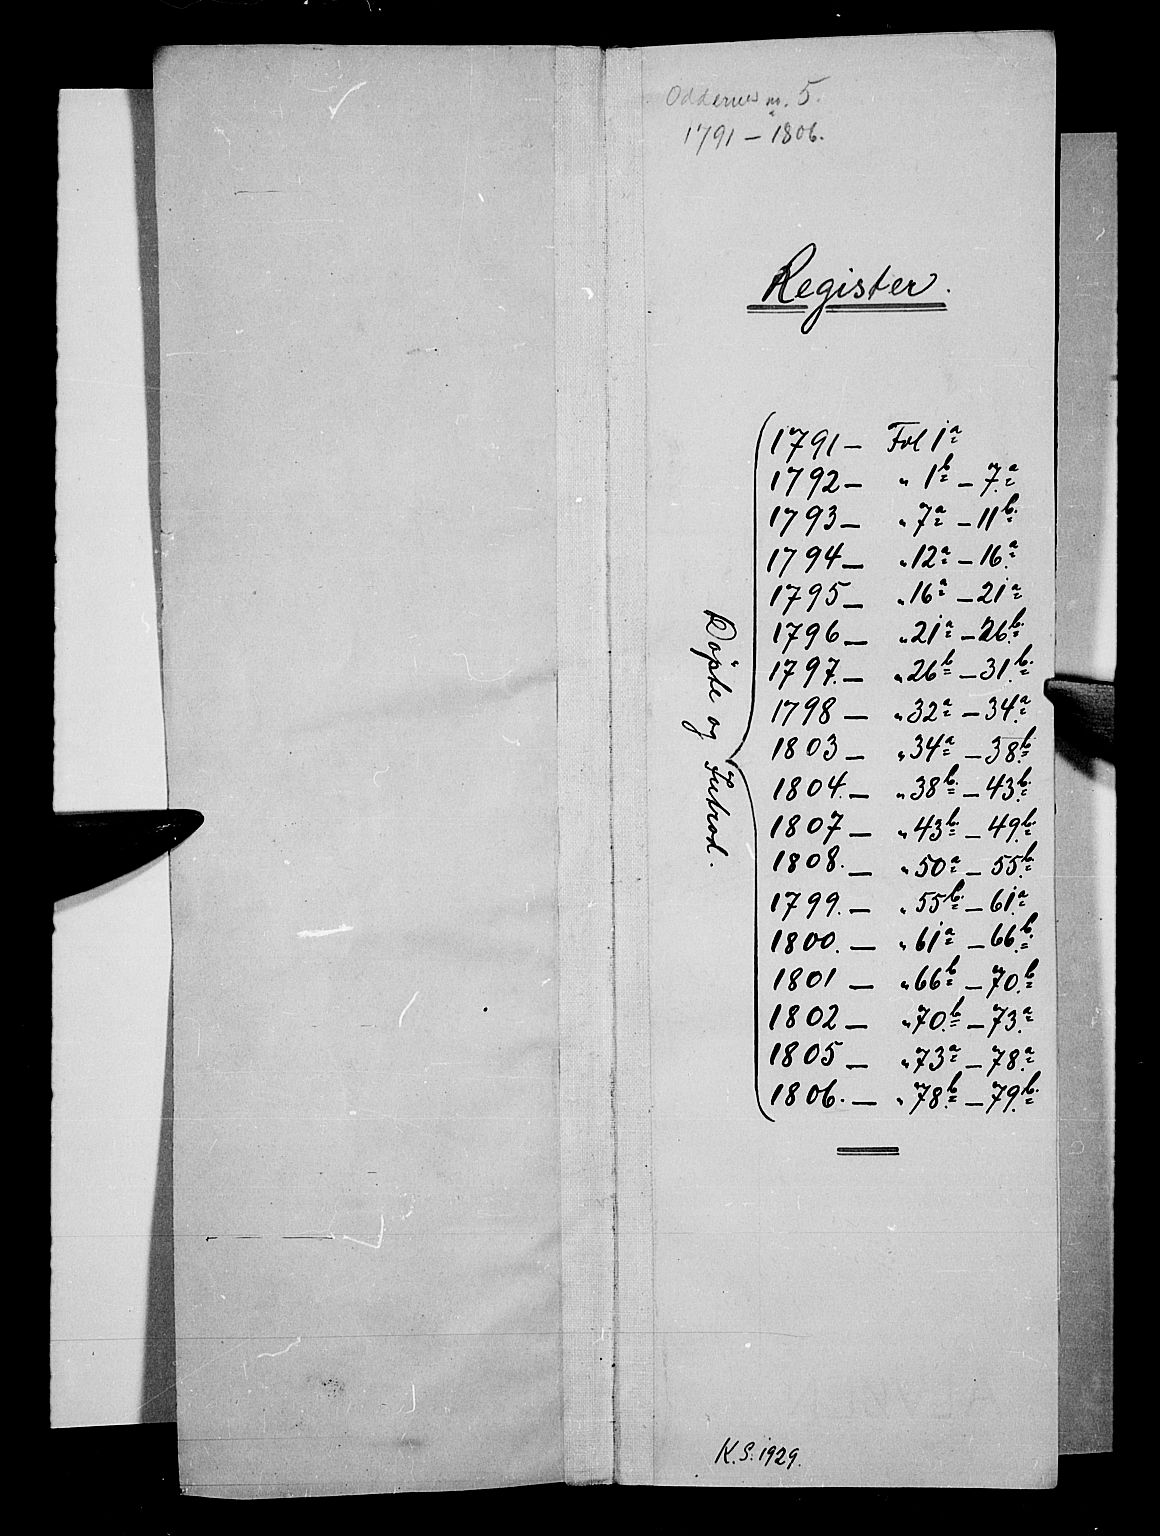 Oddernes nr. 5.
1791 – 1806.
Register.
Døpte og Introd.
1791 – Fol 1a
1792 – " 1b – 7a
1793 – " 7a – 11b
1794 – " 12a – 16a
1795 – " 16a – 21a
1796 – " 21a – 26b
1797. – " 26b – 31b
1798 – " 32a – 34a
1803 – " 34a – 38b
1804. – " 38b – 43b
1807 – " 43b – 49b
1808. – " 50a – 55b
1799. – " 55b – 61a
1800. – " 61a – 66b
1801 – " 66b – 70b
1802 – " 70b – 73a
1805 – " 73a – 78a
1806. – " 78b – 79b
K.S. 1929.